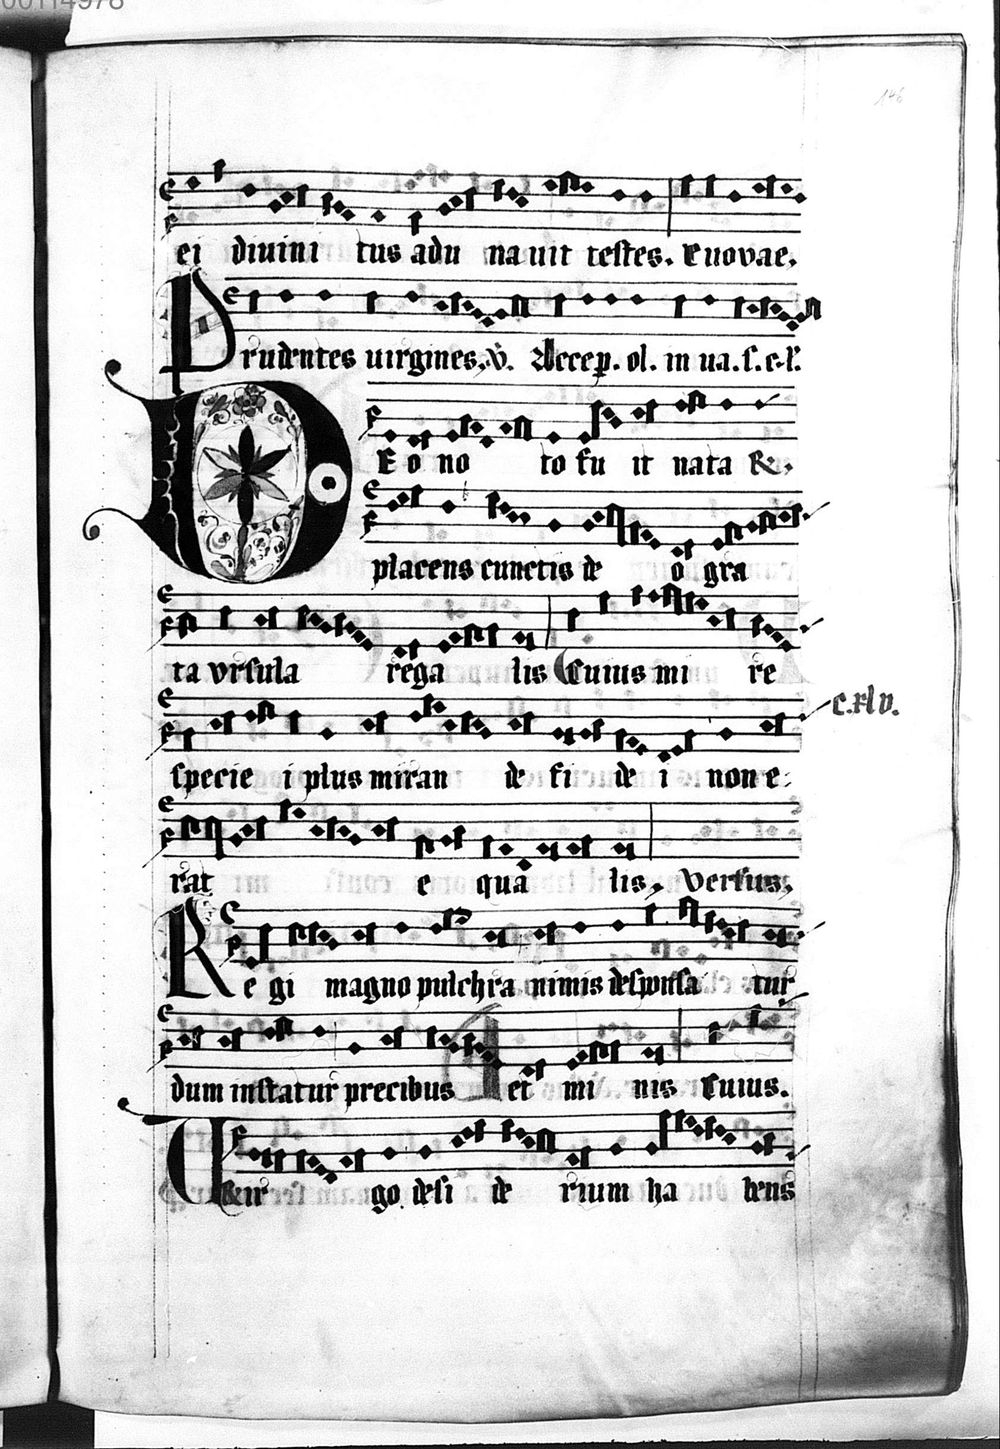 00114978
146
ei divini tus adu navit testes. Euovae.
Prudentes virgines. v̄. Accep. ol. in va. s. e. l.
DEo no to fu it nata &
placens cunctis deo gra
ta vrsula rega lis Cuius mi re
c.xlv.
specie i plus miran de fi de i non e
rat e qua lis, versus,
Re gi magno pulchra nimis desponsa tur
dum instatur precibus et mi nis Cuius.
Uir go desi de rium ha bens